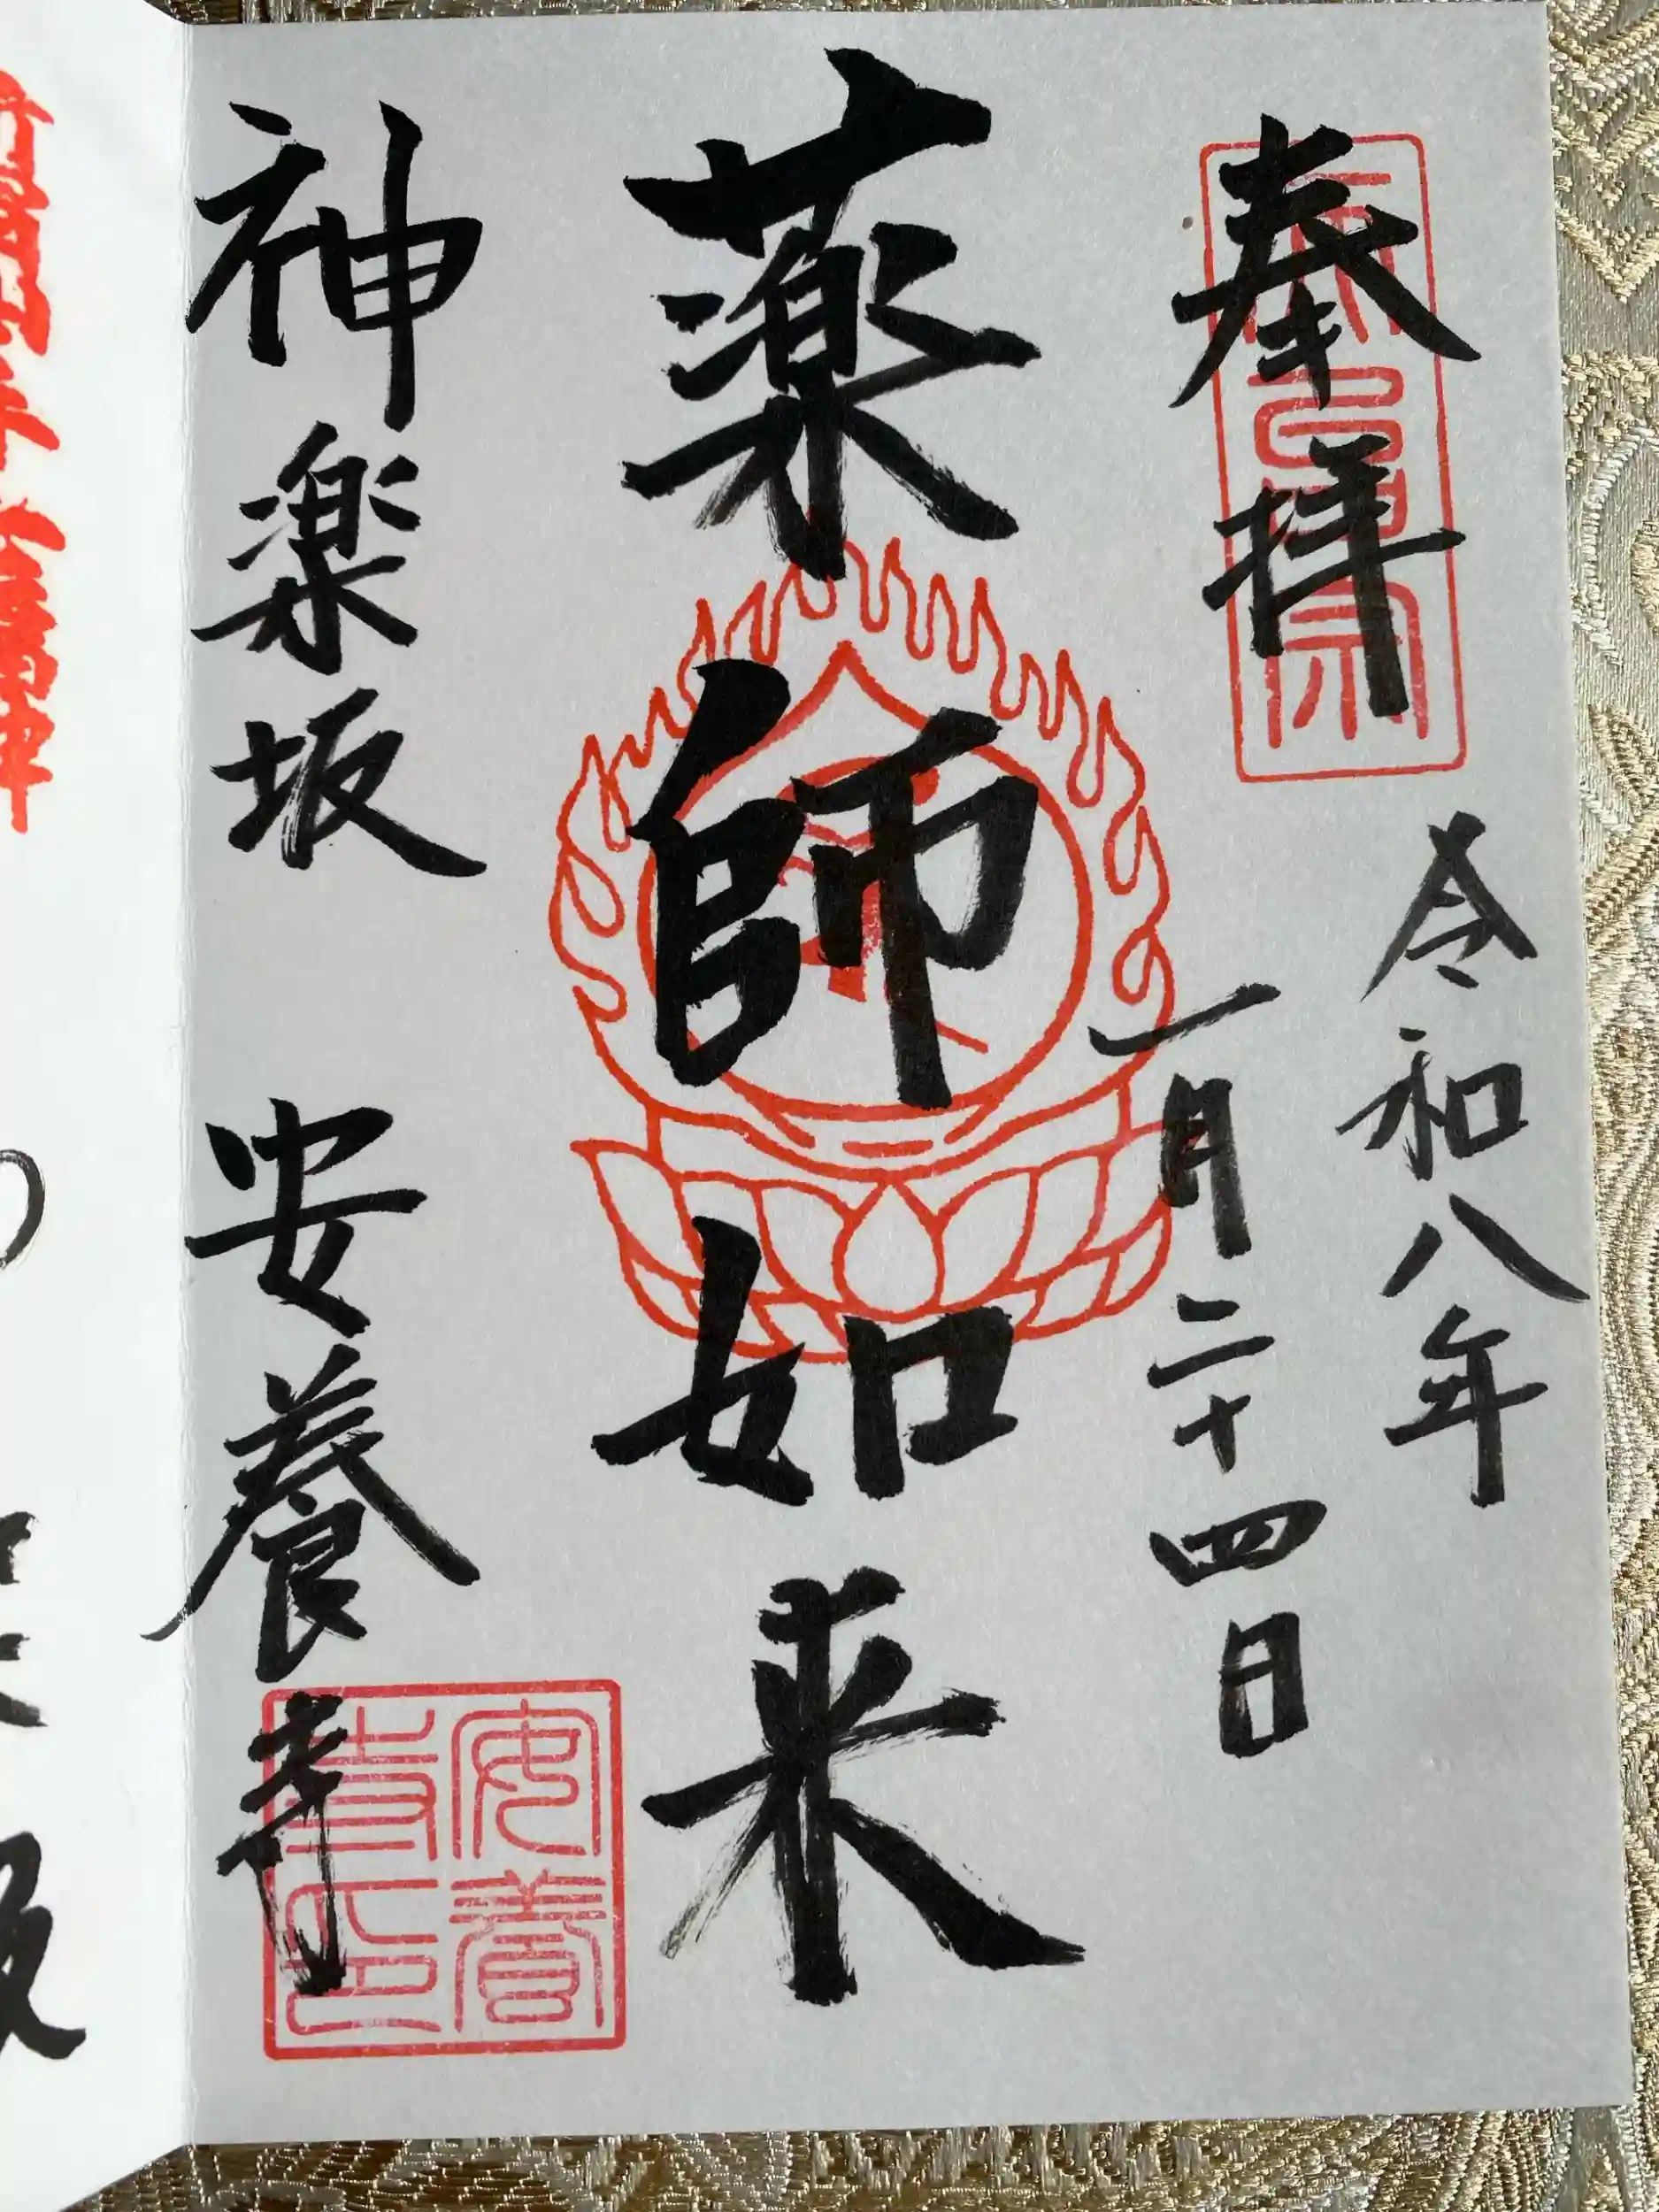 奉拝
令和八年
一月二十四日
薬師如来
神楽坂 安養寺
安養寺印